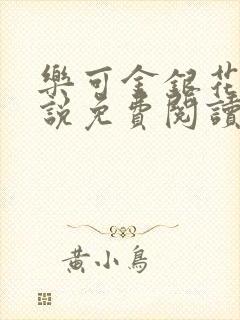 樂可金銀花
說免費閱讀
黃小鳥